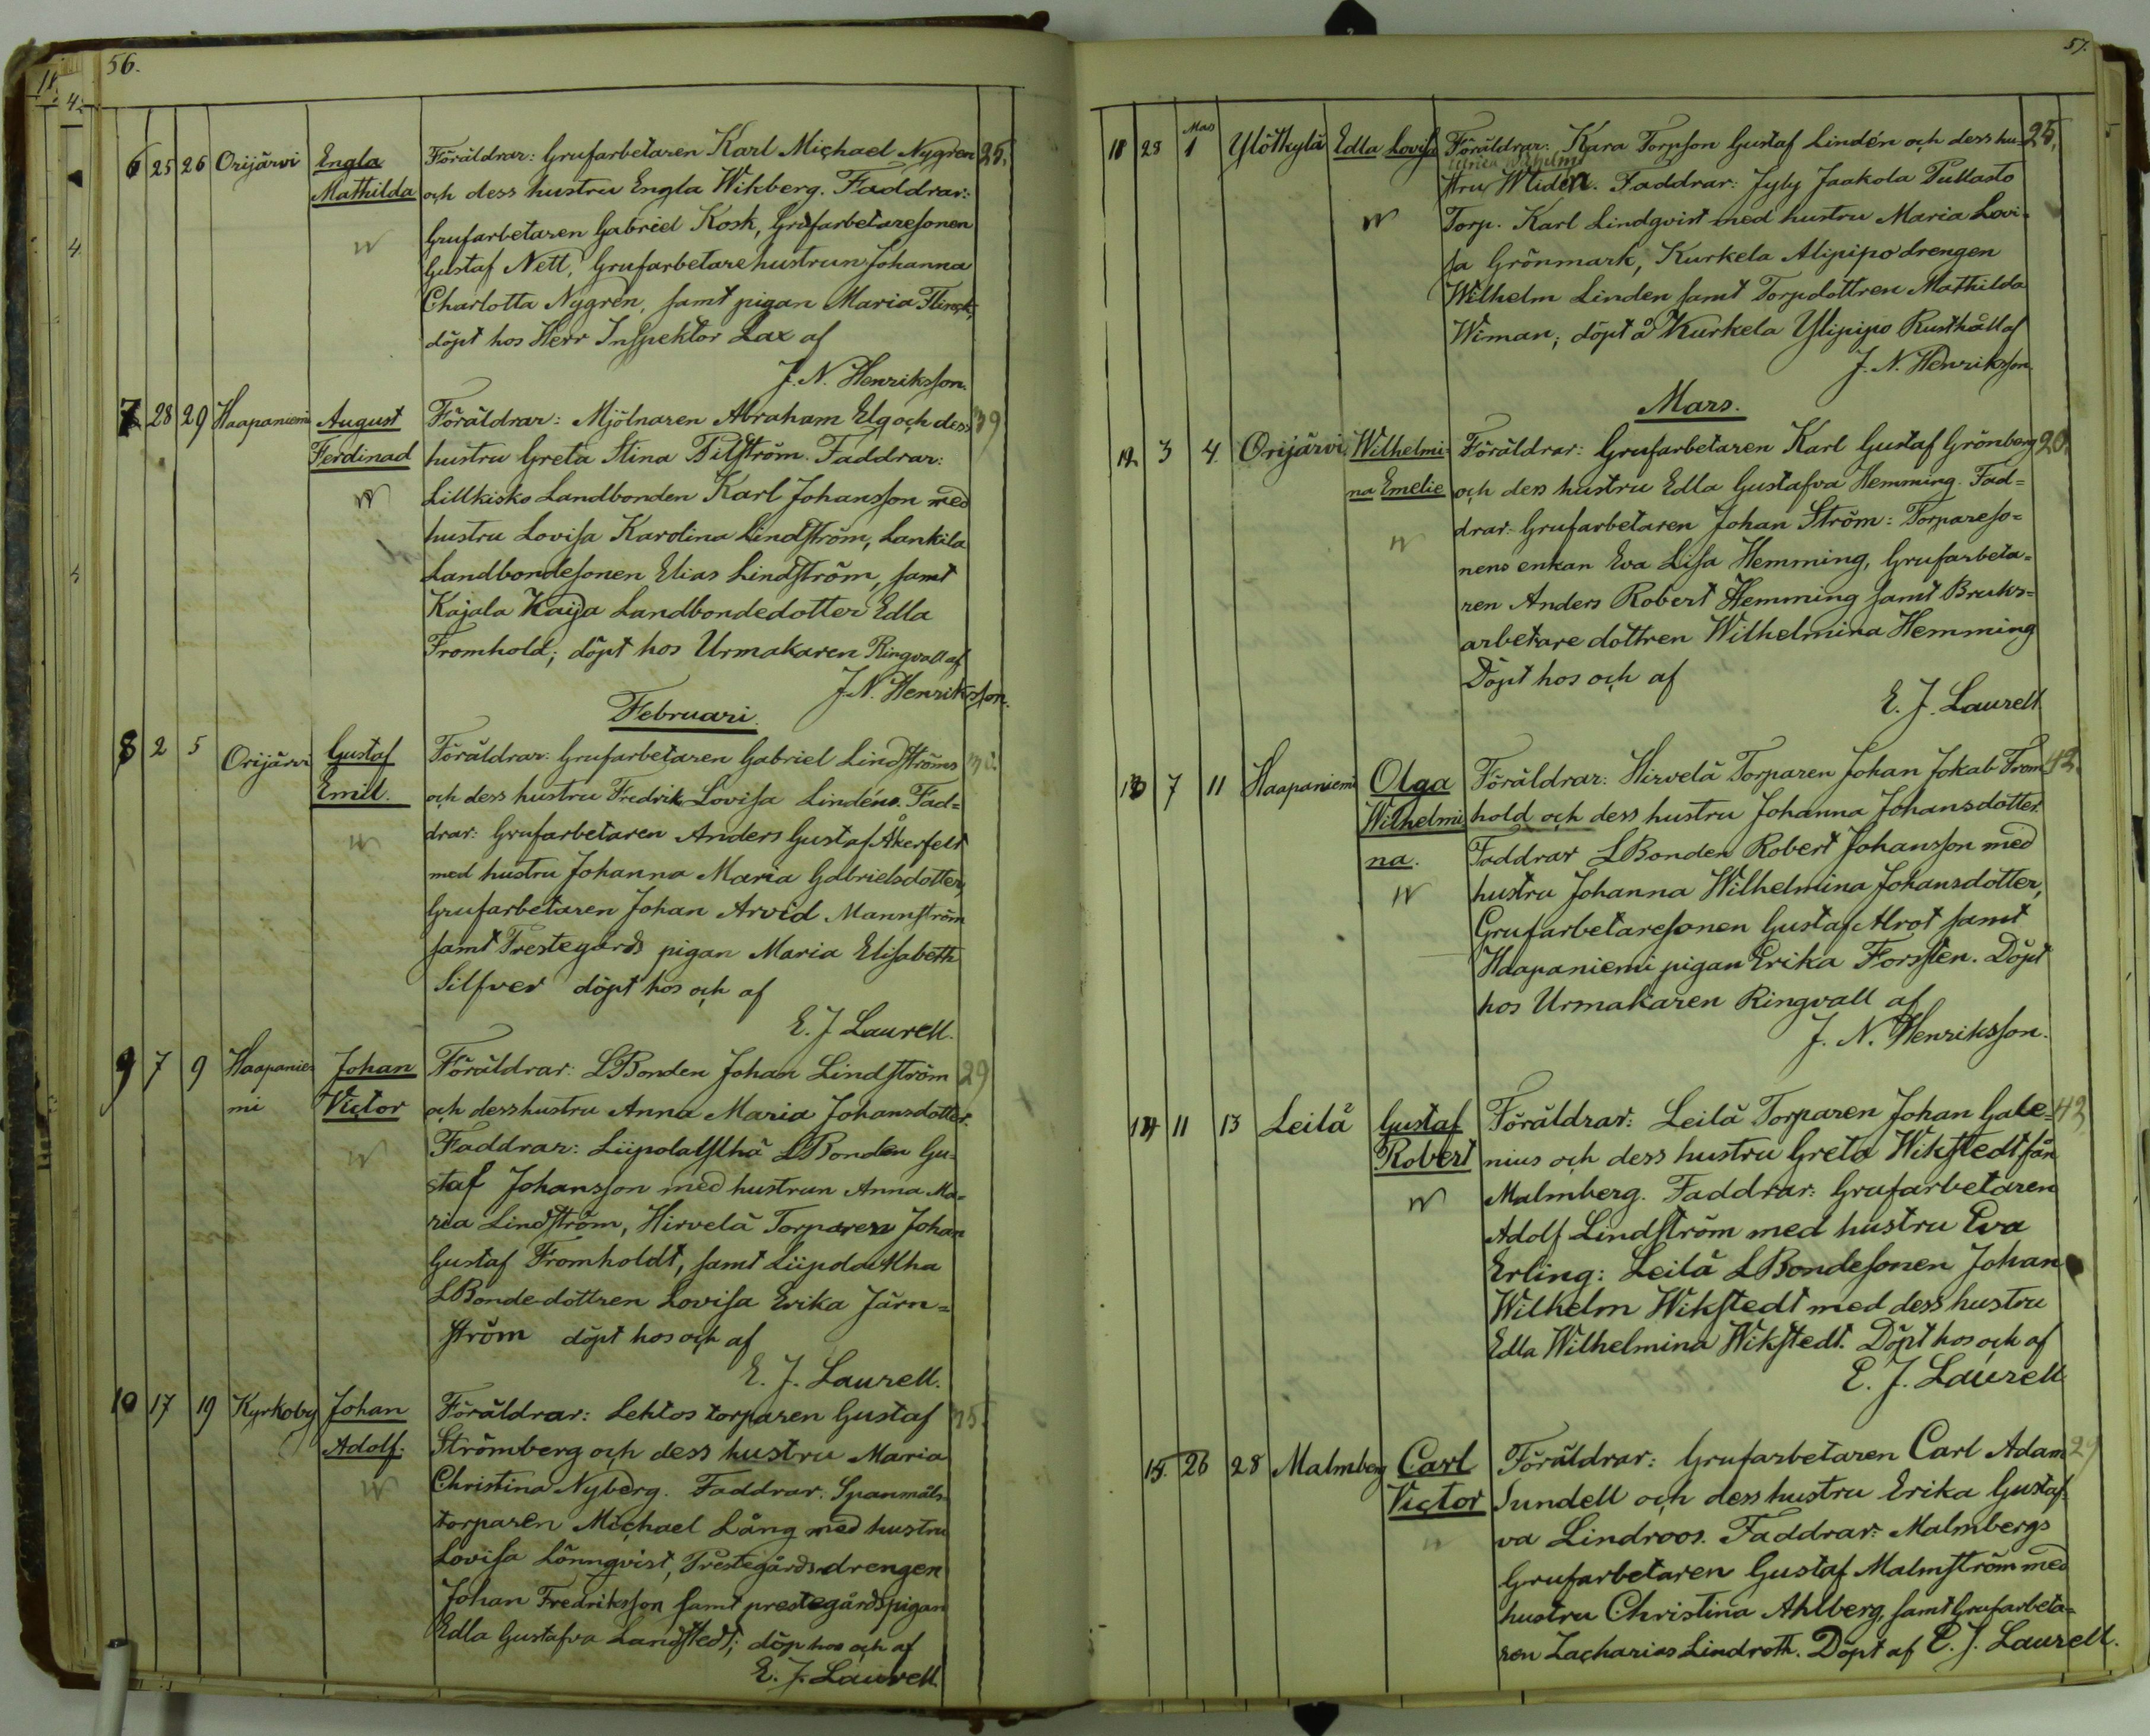 56.
6 25 26 Orijärvi Engla Föräldrar: Grufarbetaren Karl Michael Nygren 25.
Mathilda och dess hustru Engla Wihberg. Faddrar:
Grufarbetaren Gabriel Kosk, Grufarbetaresonen
Gustaf Nett, Grufarbetarehustrun Johanna
Charlotta Nygrén, samt pigan Maria Flinck,
döpt hos Herr Inspektor Lax af
J. N. Henriksson.
7 28 29 Haapaniemi August Föräldrar: Mjölnaren Abraham Elg och dess 39
Ferdinad hustru Greta Stina Bilström. Faddrar:
Lillkisko Landbonden Karl Johansson med
hustru Lovisa Karolina Lindström, Lankila
Landbondesonen Elias Lindström, samt
Kajala Kaija Landbondedotter Edla
Fromhold; döpt hos Urmakaren Ringvall af
J. N. Henriksson.
Februari.
8 2 5 Orijärvi Gustaf Föräldrar: Grufarbetaren Gabriel Lindströms
Emil. och dess hustru Fredrik Lovisa Lindéns. Fad=
drar: Grufarbetaren Anders Gustaf Åkerfelt
med hustru Johanna Maria Gabrielsdotter,
Grufarbetaren Johan Arvid Mannström
samt Prestegårds pigan Maria Elisabeth
Silfver döpt hos och af
E. J. Laurell.
9 7 9 Haapanie= Johan Föräldrar: LBonden Johan Lindström 29
mi Victor och dess hustru Anna Maria Johansdotter.
Faddrar: LBonden Gu=
staf Johansson med hustrun Anna Ma=
ria Lindström, Hirvelä Torparen Johan
Gustaf Fromholdt, samt
LBonde-dottren Lovisa Erika Järn=
ström döpt hos och af
E. J. Laurell.
10 17 19 Kyrkoby Johan Föräldrar: Lehtos torparen Gustaf 35.
Adolf. Strömberg och dess hustru Maria
Christina Nyberg. Faddrar. Spanmåls=
torparen Michael Lång med hustru
Lovisa Lönnqvist, Prestegårdsdrengen
Johan Fredriksson samt prestegårdspigan
Edla Gustafva Landstedt; döp hos och af
E. J. Laurell.
57.
11 28 Mars 1 Ylötkylä Edla Lovisa Föräldrar: Kara Torpson Gustaf Lindén och dess hu= 25.
stru Widén. Faddrar: Jyly Jaakola Pullasto
Torp. Karl Lindqvist med hustru Maria Lovi=
sa Grönmark, Kurkela Alipipo drengen
Wilhelm Linden samt Torpdottren Mathilda
Wiman; döpt å Kurkela Ylipipo Rusthåll af
J. N. Henriksson.
Mars.
12 3 4 Orijärvi Wilhelmi= Föräldrar: Grufarbetaren Karl Gustaf Grönberg 20.
na Emelie och dess hustru Edla Gustafva Hemming. Fad=
drar: Grufarbetaren Johan Ström: Torpareso=
nens enkan Eva Lisa Hemming, Grufarbeta=
ren Anders Robert Hemming samt Bruks=
arbetare dottren Wilhelmina Hemming
Döpt hos och af
E. J. Laurell.
13 7 11 Haapaniemi Olga Föräldrar: Hirvelä Torparen Johan Jakab From= 43.
Wilhelmi hold och dess hustru Johanna Johansdotter.
na. Faddrar LBonden Robert Johansson med
hustru Johanna Wilhelmina Johansdotter,
Grufarbetaresonen Gustaf Alrot samt
Haapaniemi pigan Erika Forsten. Döpt
hos Urmakaren Ringvall af
J. N. Henriksson.
14 11 13 Leilä Gustaf Föräldrar: Leilä Torparen Johan Gale= 43
Robert nius och dess hustru Greta Wikstedt från
Malmberg. Faddrar: Grufarbetaren
Adolf Lindström med hustru Eva
Erling: Leilä LBondesonen Johan
Wilhelm Wikstedt med dess hustru
Edla Wilhelmina Wikstedt. Döpt hos och af
E. J. Laurell
15. 26 28 Malmberg Carl Föräldrar: Grufarbetaren Carl Adam 29
Victor Sundell och dess hustru Erika Gustaf=
va Lindroos. Faddrar: Malmbergs
Grufarbetaren Gustaf Malmström med
hustru Christina Ahlberg, samt Grufarbeta=
ren Zacharias Lindroth. Döpt af E. J. Laurell.